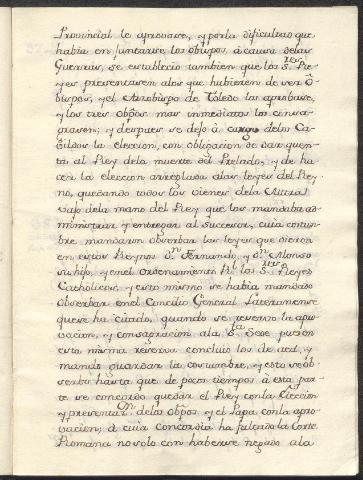 Provincial le aprovase, y por la dificultad que
havia en juntarse los obispos, á causa delas
Guerras, se establecio tambien que los S.res Re-
yes presentasen alos que hubieren de ser O-
bispos, y el Arzobispo de Toledo los aprobase,
y los tres Obpos mas inmediatos los consa-
grasen; y despues se dejo á cargo delos Ca-
bildos la eleccion, con obligacion de dar quen-
ta al Rey dela muerte del Prelado, y de ha-
cer la eleccion arreglada alas leyes del Rey-
no, quedando todos los vienes dela Mitra
vajo dela mano del Rey que los mandaba ad-
ministrar y entregar al succesor, cuia costum-
bre mandaron observar las leyes que dieron
en estos Reynos D.n Fernando, y D.n Alonso
su hijo, y enel ordenamiento Rl los S.res Reyes
Catholicos, y esto mismo se havia mandado
observar enel Concilio General Lateranense
que se ha citado, quando se reservo la apro-
vacion, y consagracion ala S.ta Sede pues en
esta misma reserva concluió los de and, y
mando guardar la costumbre, y esta se ob-
serbó hasta que de pocos tiempos á esta par-
te se concordo quedar el Rey con la Eleccion
y presentac.on delos Obpos, y el Papa con la apro-
vacion; á cuia concordia ha faltado la Corte
Romana no solo con haberse negado ala